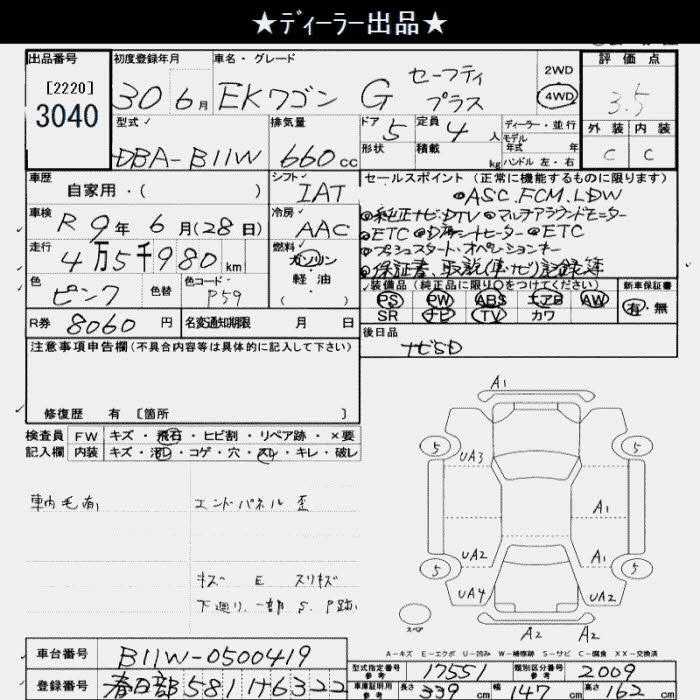 ★ディーラー出品★
出品番号
[2220]
3040
初度登録年月
30 6月
車名・グレード
EKワゴン G セーフティ
プラス
2WD
4WD
評価点
3.5
外装 内装
C C
型式
DBA-B11W
排気量
660cc
ドア 5
形状
定員 4人
積載 kg
ディーラー・並行
モデル
年式 年
ハンドル 左・右
車歴
自家用・( )
シフト
IAT
車検
R 9年 6月(28日)
冷房
AAC
走行
4万5千980km
燃料
ガソリン
・
軽油
( )
色
ピンク
色替
色コード
P59
R券 8060円
名変通知期限 月 日
セールスポイント (正常に機能するものに限ります)
◎ASC.FCM.LDW
◎純正ナビ.DTV ◎マルチアラウンドモニター
◎ETC ◎ ◎ETC
◎プッシュスタート・オペレーションキー
◎保証書、取説(車・ナビ)記録簿
装備品 (純正品に限り○をつけてください)
PS PW ABS エアB AW
SR ナビ TV カワ
新車保証書
有・無
後日品
ナビSD
注意事項申告欄 (不具合内容等は具体的に記入して下さい)
修復歴 有 [箇所 ]
検査員
記入欄
FW キズ・飛石・ヒビ割・リペア跡・×要
内装 キズ・汚レ・コゲ・穴・スレ・キレ・破レ
車内毛有
エンドパネル 歪
キズ E スリキズ
下廻り、一部 S. P跡
A1
5 5
UA3
A1
UA2 A1
5 5
UA4 UA2
スペア
A2 A2
A-キズ E-エクボ U-凹み W-補修跡 S-サビ C-腐食 XX-交換済
車台番号 B11W-0500419
登録番号 春日部 581 け6322
型式指定番号
参考
17551
類別区分番号
参考
2009
車庫証明用
参考
長さ 339cm 幅 147cm 高さ 162cm